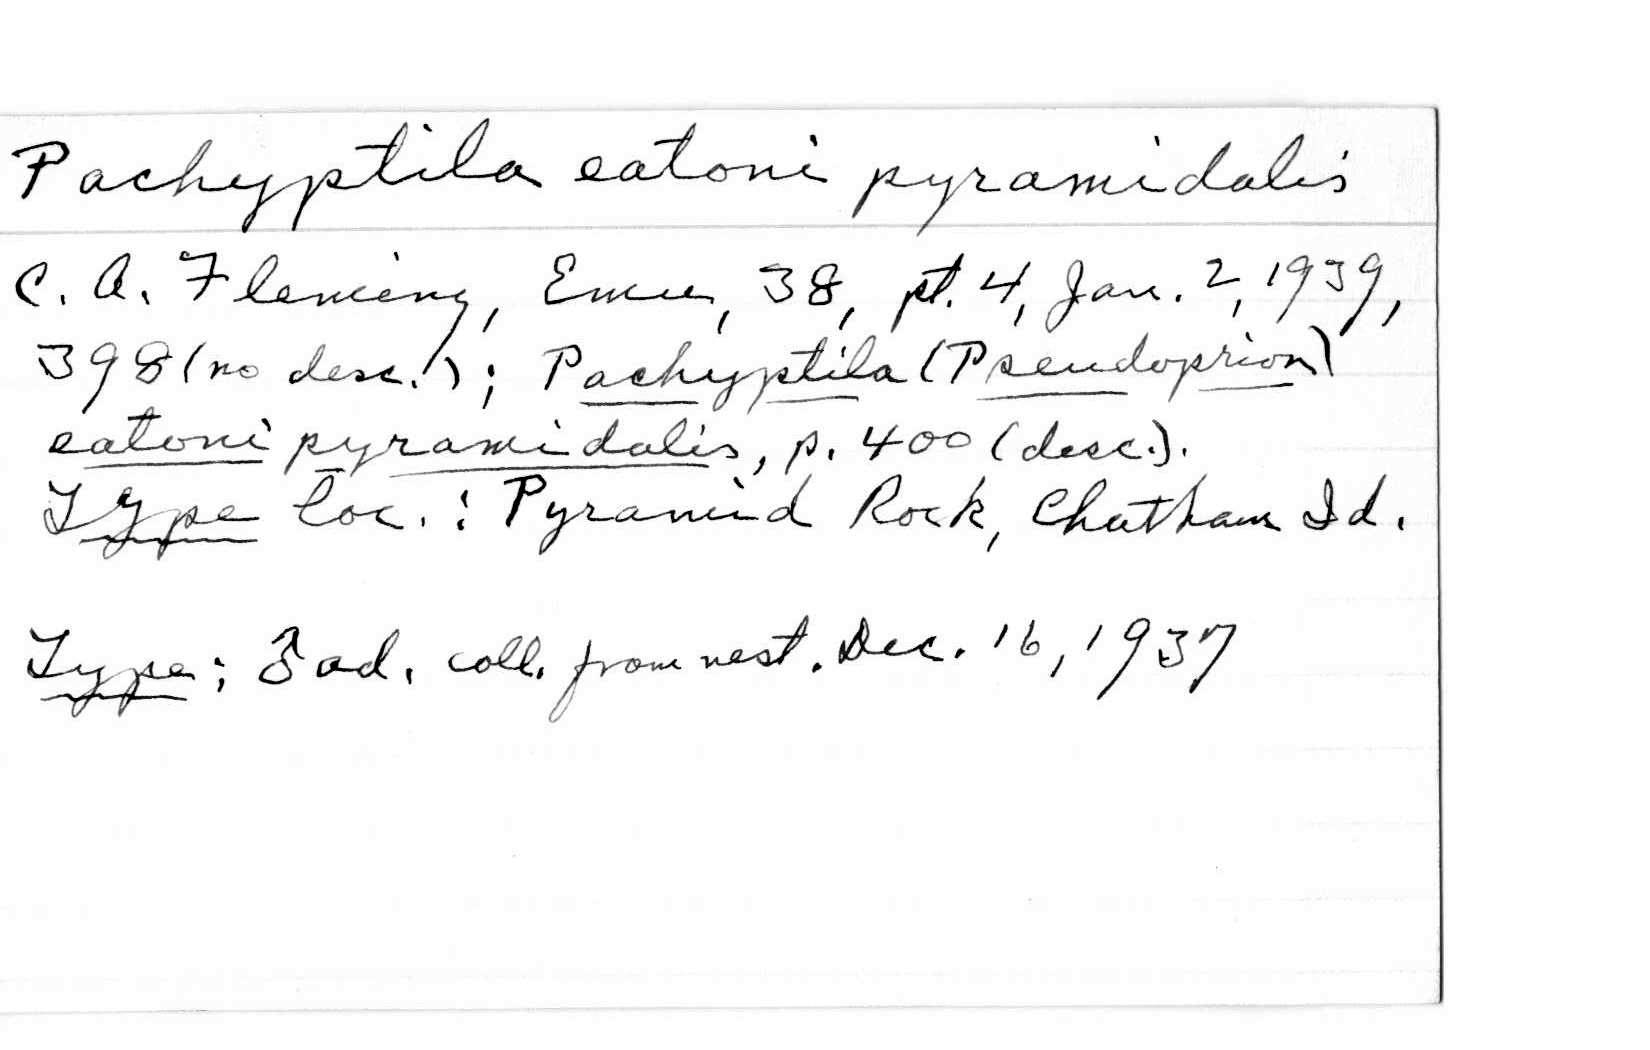 Pachyptila eatoni pyramidalis
C. A. Fleming, Emu, 38, pt. 4, Jan. 2, 1939,
398 (no desc.); Pachyptila (Pseudoprion)
eatoni pyramidalis, p. 400 (desc.).
Type loc.: Pyramid Rock, Chatham Id.
Type: ♂ ad. coll. from nest. Dec. 16, 1937